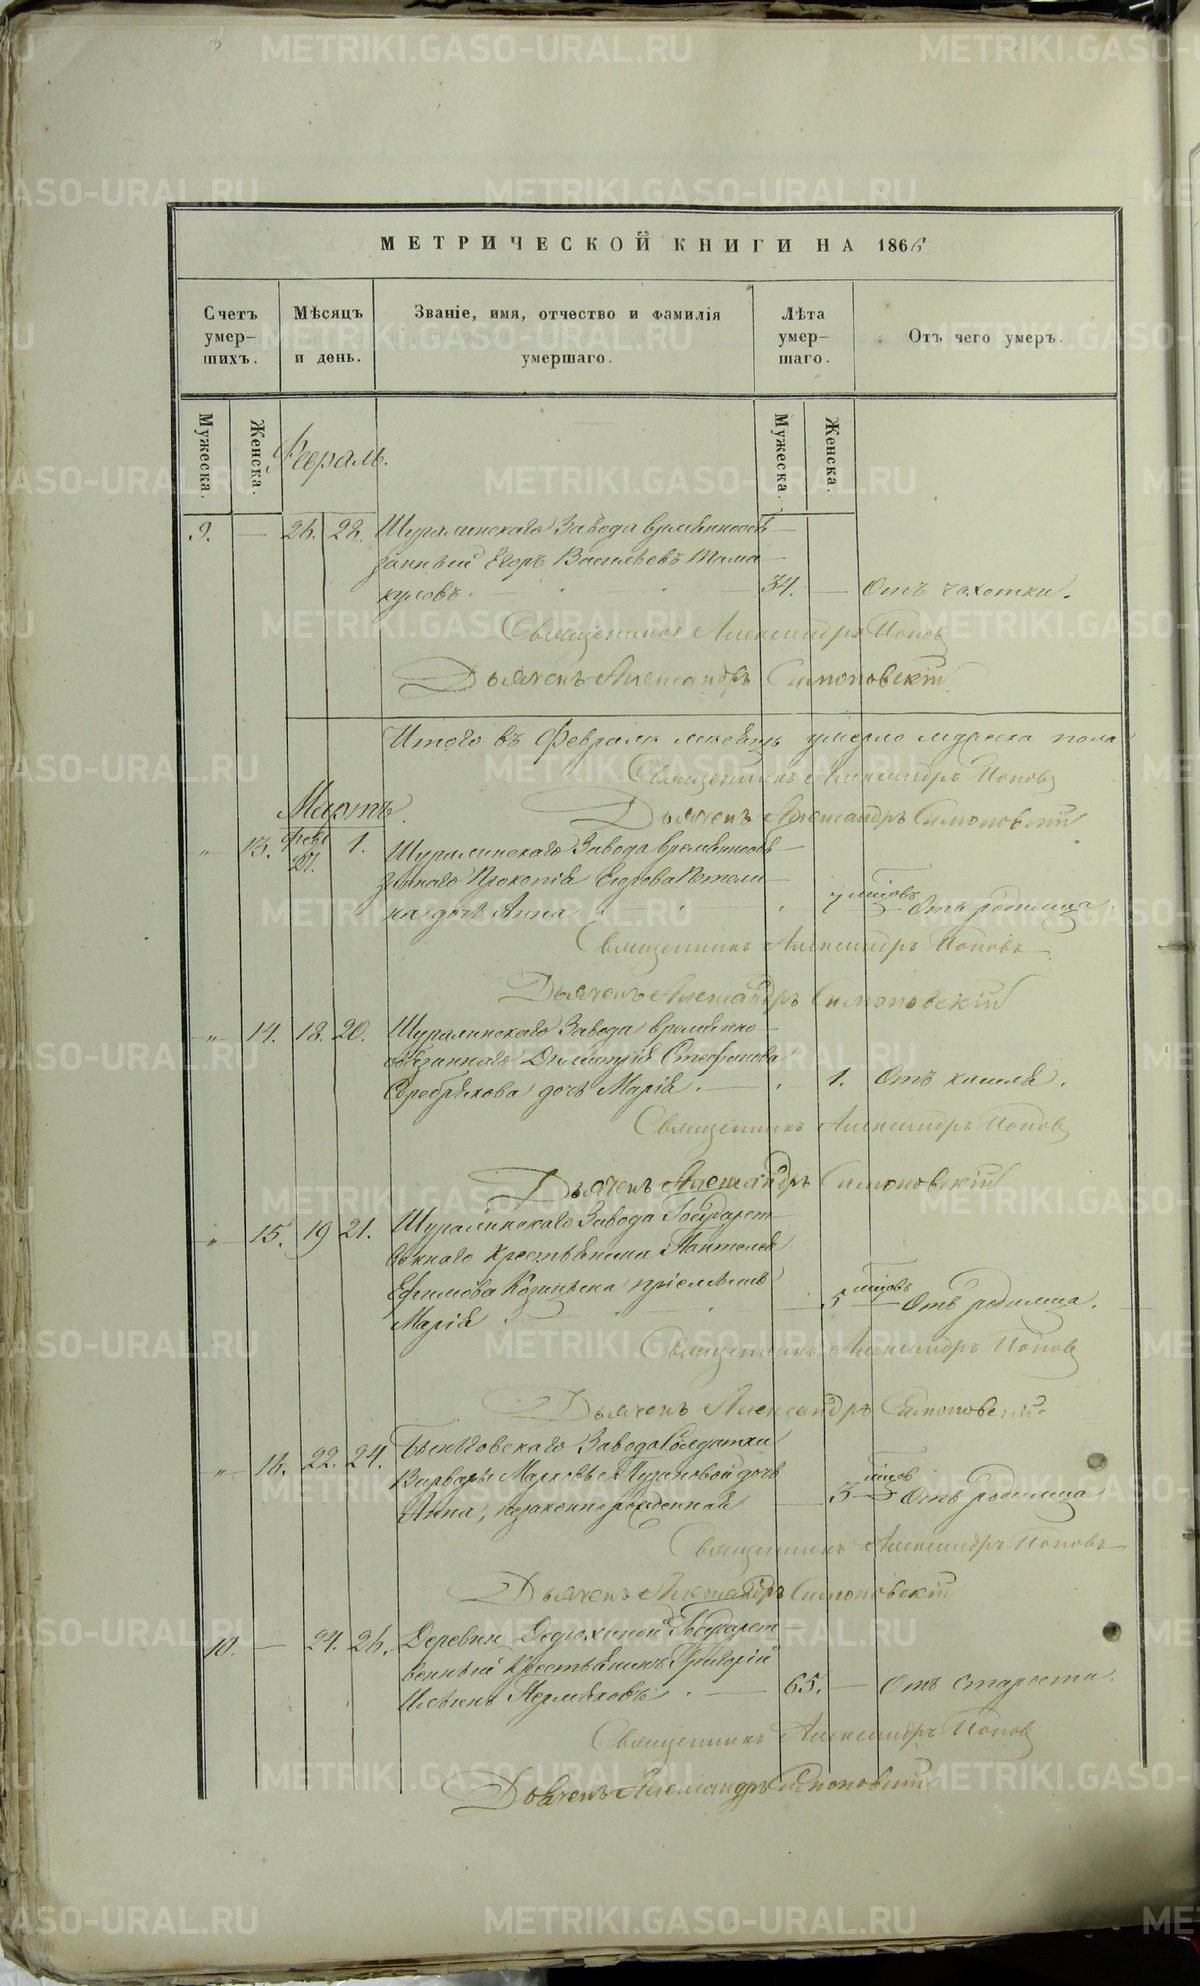 МЕТРИЧЕСКОЙ КНИГИ НА 1866
Счетъ умер-шихъ.
Мѣсяцъ и день.
Званіе, имя, отчество и фамилія умершаго.
Лѣта умер-шаго.
Отъ чего умеръ.
Мужеска. Женска. Мужеска. Женска.
Февраль.
9. — 26. 28. Шуралинскаго Завода временнообя-
занный Егоръ Васильевъ Мама
куловъ. 34. — Отъ чахотки.
Священникъ Александръ Попов
Дьячекъ Александръ Симоновскій
Итого въ Февралѣ мѣсяцѣ умерло мужеска пола
Священникъ Александръ Поповъ
Дьячекъ Александръ Симоновскій
Мартъ.
„ 13. Февр 27. 1. Шуралинскаго Завода временнообя-
заннаго Прокопія Егорова
на дочь Анна 7 мѣсяцовъ Отъ родимца.
Священникъ Александръ Поповъ
Дьячекъ Александръ Симоновскій
„ 14. 18. 20. Шуралинскаго Завода временно-
обязаннаго Димитрія Стефанова
Серебрякова дочь Марія. 1. Отъ кашля.
Священникъ Александръ Поповъ
Дьячекъ Александръ Симоновскій
„ 15. 19 21. Шуралинскаго Завода Государст-
веннаго Крестьянина Пантелея
Ефимова пріемышъ
Марія 5 мѣсяцовъ Отъ родимца.
Священникъ Александръ Поповъ
Дьячекъ Александръ Симоновскій
„ 16. 22. 24. Завода Солдатки
Варвары Марковой дочь
Анна, незаконнорожденная 3 Отъ родимца
Священникъ Александръ Поповъ
Дьячекъ Александръ Симоновскій
10. — 24. 26. Деревни Дедюхиной Государст-
венный Крестьянинъ Григорій
Ильинъ Пермяковъ. 65. — Отъ старости.
Священникъ Александръ Попов
Дьячекъ Александръ Симоновскій
METRIKI.GASO-URAL.RU